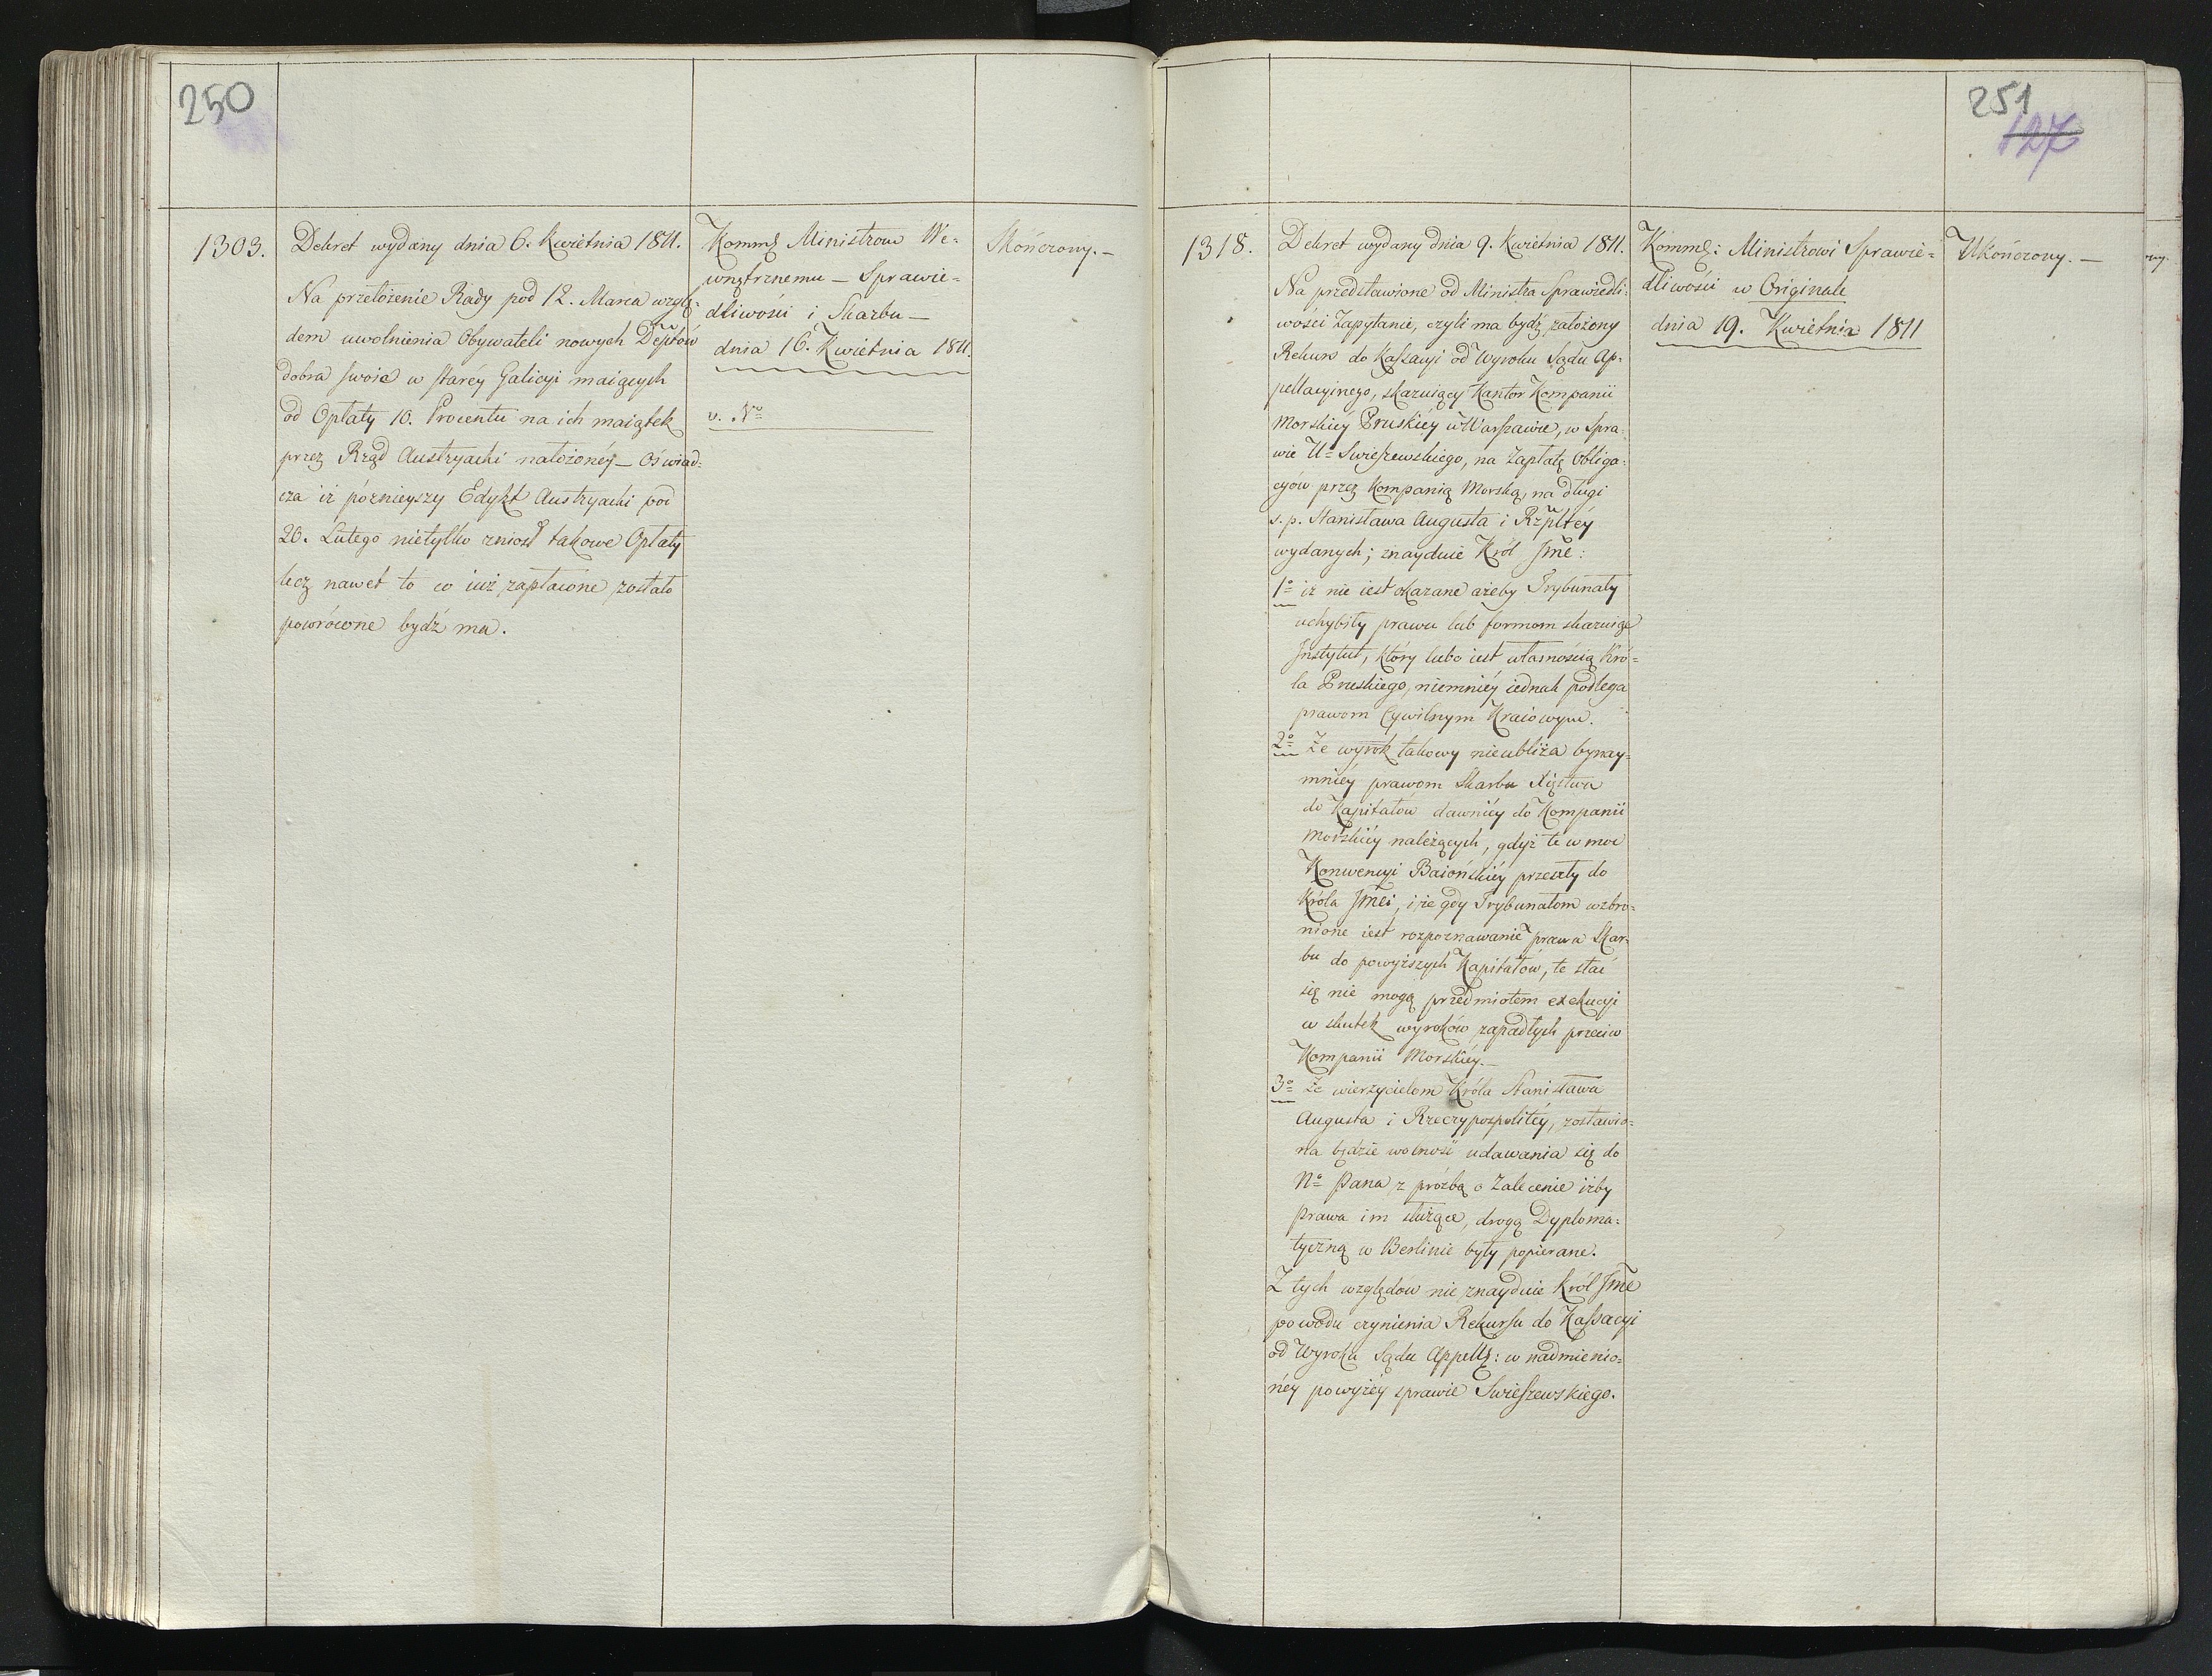 250
1303.
Dekret wydany dnia 6. Kwietnia 1811.
Na przełożenie Rady pod 12. Marca wzglę-
dem uwolnienia Obywateli nowych Depñtów
dobra swoie w staréy Galicyi maiących
od Opłaty 10. Procentu na ich maiątek
przez Rząd Austryacki nałożonéy – Oświad-
cza iż poźnieyszy Edykt Austryacki pod
20. Lutego nietylko zniosł takowe Opłaty
lecz nawet to co iuż zapłacone zostało
powrócone bydź ma.
Kommq Ministrom We-
wnętrznemu – Sprawie-
dliwości i Skarbu –
dnia 16. Kwietnia 1811.
v. No
Skończony. –
251
127
1318.
Dekret wydany dnia 9. Kwietnia 1811.
Na przedstawione od Ministra Sprawiedli-
wości Zapytanie, czyli ma bydź założony
Rekurs do Kassacyi od Wyroku Sądu Ap-
pellacyinego, skazuiący Kantor Kompanii
Morskiéy Pruskiéy w Warszawie, w Spra-
wie Uo Swieszewskiego, na Zapłatę Obliga-
cyów przez Kompanią Morską, na długi
s. p. Stanisława Augusta i Rzpltéy
wydanych; znayduie Król Jmć:
1o iż nie iest okazane ażeby Trybunały
uchybiły prawu lub formom skazuiąc
Instytut, który lubo iest własnością Kró-
la Pruskiego, niemniéy iednak podlega
prawom Cywilnym Kraiowym.
2o Że wyrok takowy nieubliża bynay-
mniéy prawom Skarbu Xięstwa
do Kapitałów dawniéy do Kompanii
Morskiéy należących, gdyż te w moc
Konwencyi Baiońskiéy przeszły do
Króla Jmci, i że gdy Trybunałom wzbro-
nione iest rozpoznawanie prawa Skar-
bu do powyższych Kapitałow, te stać
się nie mogą przedmiotem exekucyi
w skutek wyroków zapadłych przeciw
Kompanii Morskiéy. –
3o Że wierzycielom Króla Stanisława
Augusta i Rzeczypospolitéy, zostawio-
na będzie wolność udawania się do
No Pana z prośbą o Zalecenie iżby
Prawa im służące, drogą Dyploma-
tyczną w Berlinie były popierane.
Z tych względow nie znayduie Król Jmć
powodu czynienia Rekursu do Kassacyi
od Wyroku Sądu Appellq: w nadmienio-
néy powyżéy sprawie Swieszewskiego.
Kommq: Ministrowi Sprawie-
dliwości w Originale
dnia 19. Kwietnia 1811
Ukończony. –